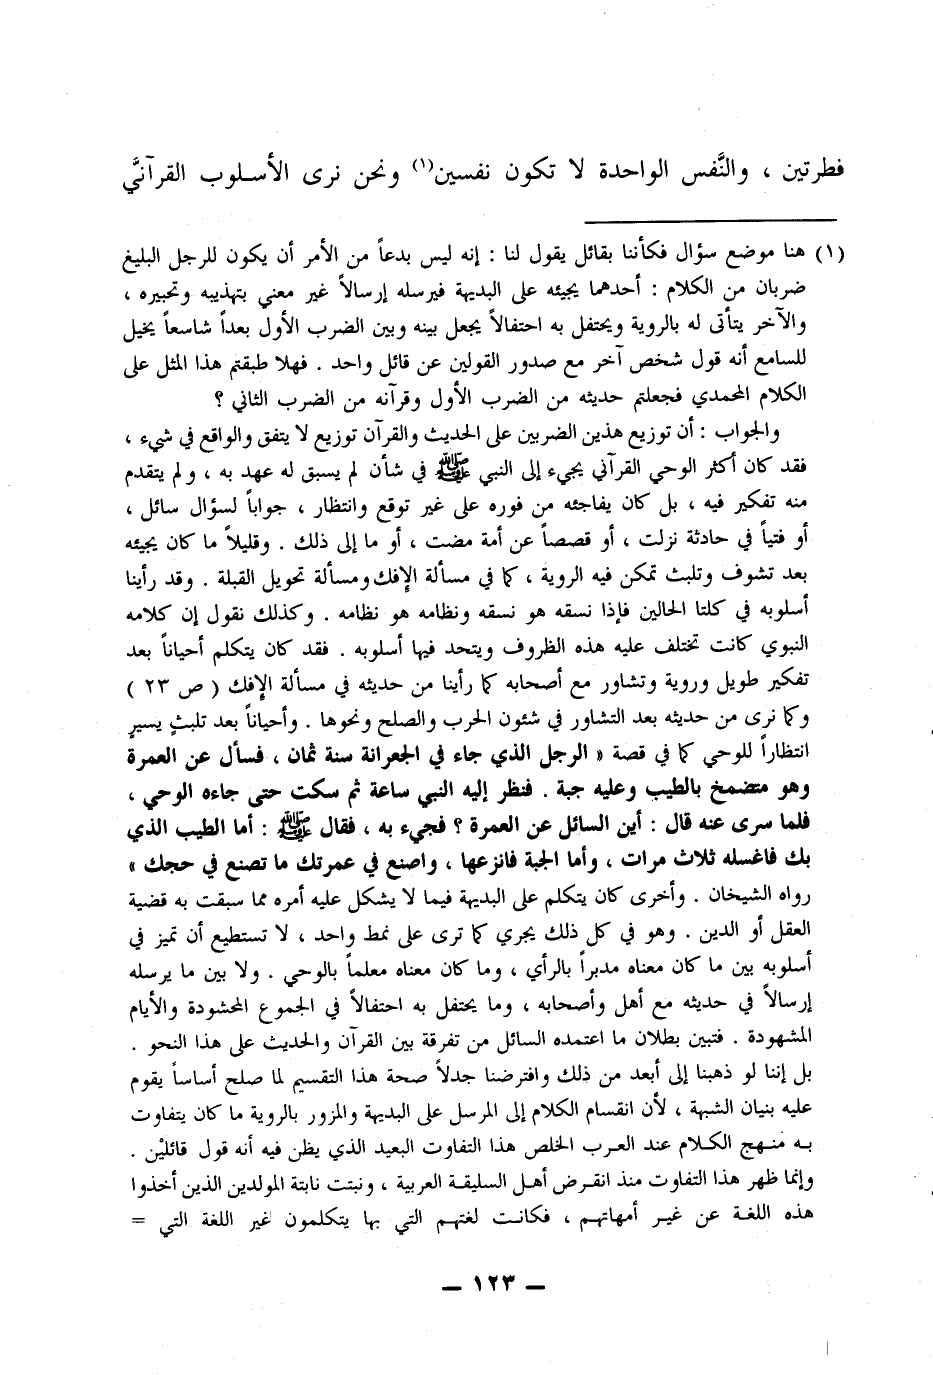 فطرتين ، والنَّفس الواحدة لا تكون نفسين(١) ونحن نرى الأسلوب القرآنيَّ
(١) هنا موضع سؤال فكأننا بقائل يقول لنا : إنه ليس بدعاً من الأمر أن يكون للرجل البليغ
ضربان من الكلام : أحدهما يجيئه على البديهة فيرسله إرسالاً غير معني بتهذيبه وتحبيره ،
والآخر يتأتى له بالروية ويحتفل به احتفالاً يجعل بينه وبين الضرب الأول بعداً شاسعاً يخيل
للسامع أنه قول شخص آخر مع صدور القولين عن قائل واحد . فهلا طبقتم هذا المثل على
الكلام المحمدي فجعلتم حديثه من الضرب الأول وقرآنه من الضرب الثاني ؟
والجواب : أن توزيع هذين الضربين على الحديث والقرآن توزيع لا يتفق والواقع في شيء ،
فقد كان أكثر الوحي القرآني يجيء إلى النبي ﷺ في شأن لم يسبق له عهد به ، ولم يتقدم
منه تفكير فيه ، بل كان يفاجئه من فوره على غير توقع وانتظار ، جواباً لسؤال سائل ،
أو فتياً في حادثة نزلت ، أو قصصاً عن أمة مضت ، أو ما إلى ذلك . وقليلاً ما كان يجيئه
بعد تشوف وتلبث تمكن فيه الروية ، كما في مسألة الإفك ومسألة تحويل القبلة . وقد رأينا
أسلوبه في كلتا الحالين فإذا نسقه هو نسقه ونظامه هو نظامه . وكذلك نقول إن كلامه
النبوي كانت تختلف عليه هذه الظروف ويتحد فيها أسلوبه . فقد كان يتكلم أحياناً بعد
تفكير طويل وروية وتشاور مع أصحابه كما رأينا من حديثه في مسألة الإفك ( ص ٢٣ )
وكما نرى من حديثه بعد التشاور في شئون الحرب والصلح ونحوها . وأحياناً بعد تلبثٍ يسيرٍ
انتظاراً للوحي كما في قصة « الرجل الذي جاء في الجعرانة سنة ثمان ، فسأل عن العمرة
وهو متضمخ بالطيب وعليه جبة . فنظر إليه النبي ساعة ثم سكت حتى جاءه الوحي ،
فلما سرى عنه قال : أين السائل عن العمرة ؟ فجيء به ، فقال ﷺ : أما الطيب الذي
بك فاغسله ثلاث مرات ، وأما الجبة فانزعها ، واصنع في عمرتك ما تصنع في حجك »
رواه الشيخان . وأخرى كان يتكلم على البديهة فيما لا يشكل عليه أمره مما سبقت به قضية
العقل أو الدين . وهو في كل ذلك يجري كما ترى على نمط واحد ، لا تستطيع أن تميز في
أسلوبه بين ما كان معناه مدبراً بالرأي ، وما كان معناه معلماً بالوحي . ولا بين ما يرسله
إرسالاً في حديثه مع أهل وأصحابه ، وما يحتفل به احتفالاً في الجموع المحشودة والأيام
المشهودة . فتبين بطلان ما اعتمده السائل من تفرقة بين القرآن والحديث على هذا النحو .
بل إننا لو ذهبنا إلى أبعد من ذلك وافترضنا جدلاً صحة هذا التقسيم لما صلح أساساً يقوم
عليه بنيان الشبهة ، لأن انقسام الكلام إلى المرسل على البديهة والمزور بالروية ما كان يتفاوت
به منهج الكلام عند العرب الخلص هذا التفاوت البعيد الذي يظن فيه أنه قول قائلَيْن .
وإنما ظهر هذا التفاوت منذ انقرض أهل السليقة العربية ، ونبتت نابتة المولدين الذين أخذوا
هذه اللغة عن غير أمهاتهم ، فكانت لغتهم التي بها يتكلمون غير اللغة التي =
— ١٢٣ —